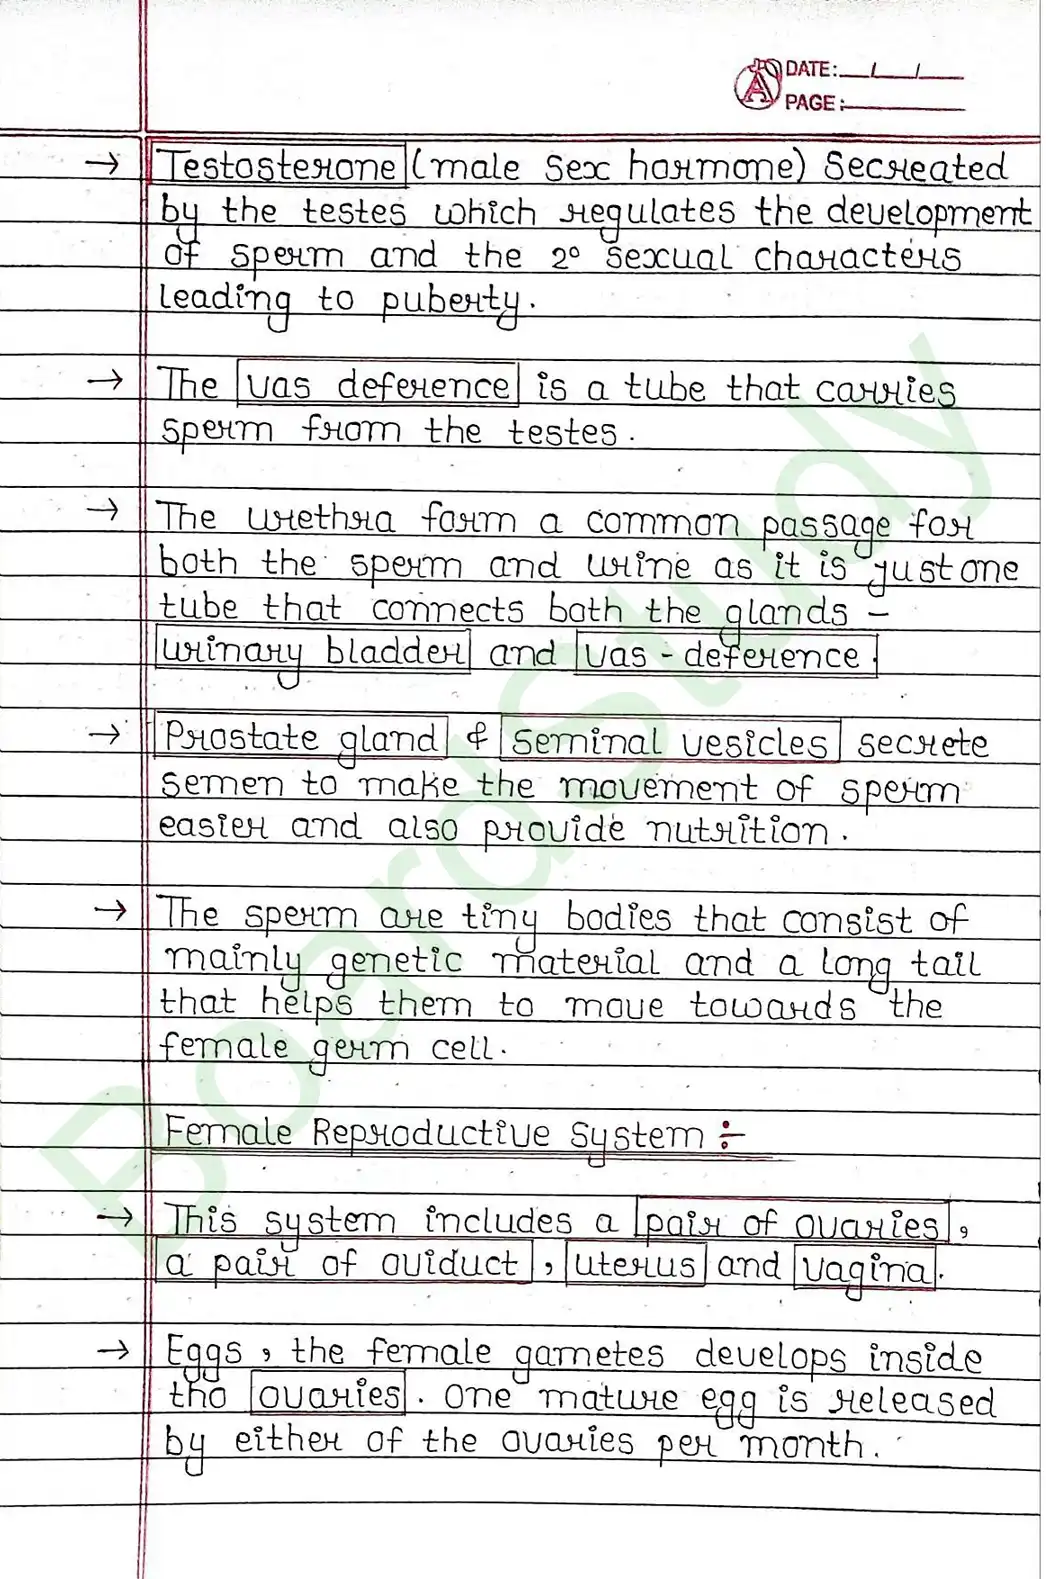 DATE: __/__/__
PAGE: ________
→ Testosterone (male sex hormone) Secreated
by the testes which regulates the development
of sperm and the 2° sexual characters
leading to puberty.
→ The vas deference is a tube that carries
sperm from the testes.
→ The urethra form a common passage for
both the sperm and urine as it is just one
tube that connects both the glands -
urinary bladder and vas - deference.
→ Prostate gland & seminal vesicles secrete
semen to make the movement of sperm
easier and also provide nutrition.
→ The sperm are tiny bodies that consist of
mainly genetic material and a long tail
that helps them to move towards the
female germ cell.
Female Reproductive System :-
→ This system includes a pair of ovaries,
a pair of oviduct, uterus and vagina.
→ Eggs, the female gametes develops inside
tho ovaries. One mature egg is released
by either of the ovaries per month.
BoardStudy